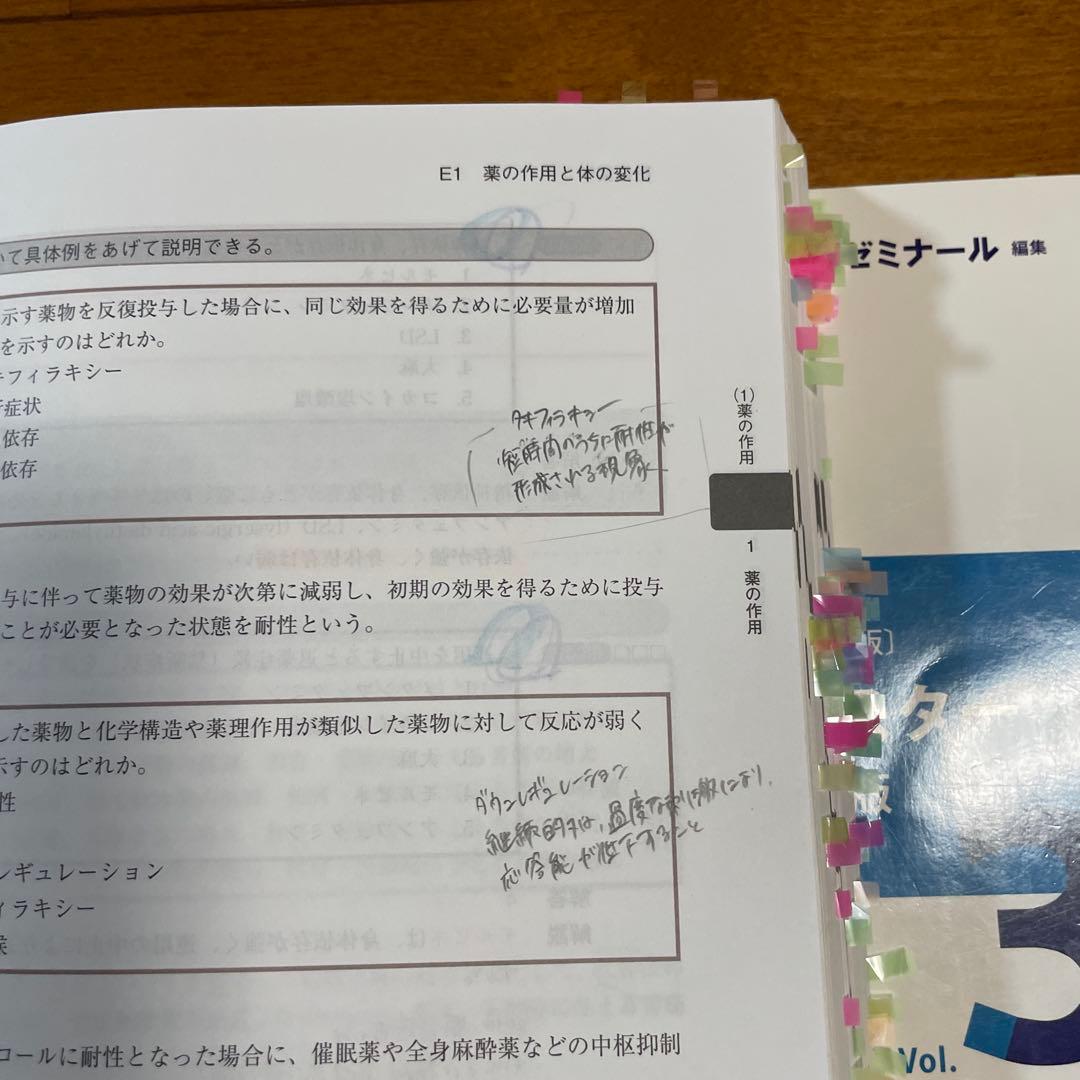 E1 薬の作用と体の変化
いて具体例をあげて説明できる。
示す薬物を反復投与した場合に、同じ効果を得るために必要量が増加
を示すのはどれか。
キフィラキシー
症状
依存
依存
タキフィラキシー
短時間のうちに耐性が
形成される現象
与に伴って薬物の効果が次第に減弱し、初期の効果を得るために投与
ことが必要となった状態を耐性という。
した薬物と化学構造や薬理作用が類似した薬物に対して反応が弱く
示すのはどれか。
性
レギュレーション
ィラキシー
候
ダウンレギュレーション
継続的または、過度な刺激により、
応答能が低下すること
コールに耐性となった場合に、催眠薬や全身麻酔薬などの中枢抑制
(1)薬の作用
1 薬の作用
ゼミナール 編集
版〕
ター
版
3
Vol.